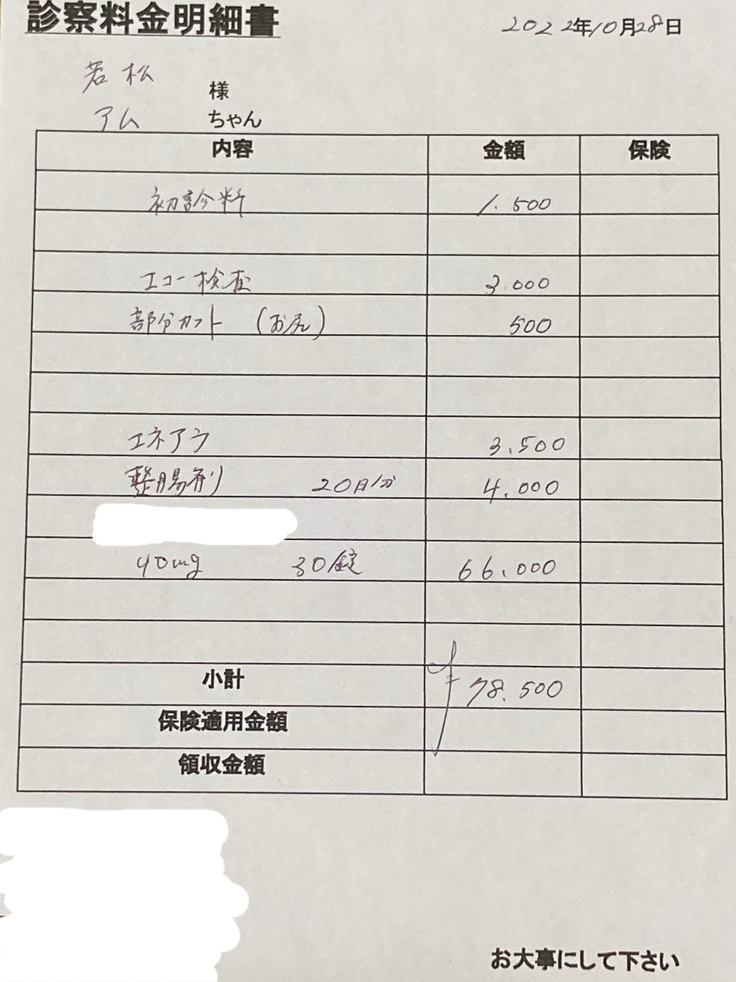 診察料金明細書
2022年10月28日
若松 様
アム ちゃん
内容 金額 保険
初診料 1.500
エコー検査 3.000
部分カット (お尻) 500
エネアラ 3.500
整腸剤 20日分 4.000
40mg 30錠 66.000
小計 ¥78.500
保険適用金額
領収金額
お大事にして下さい